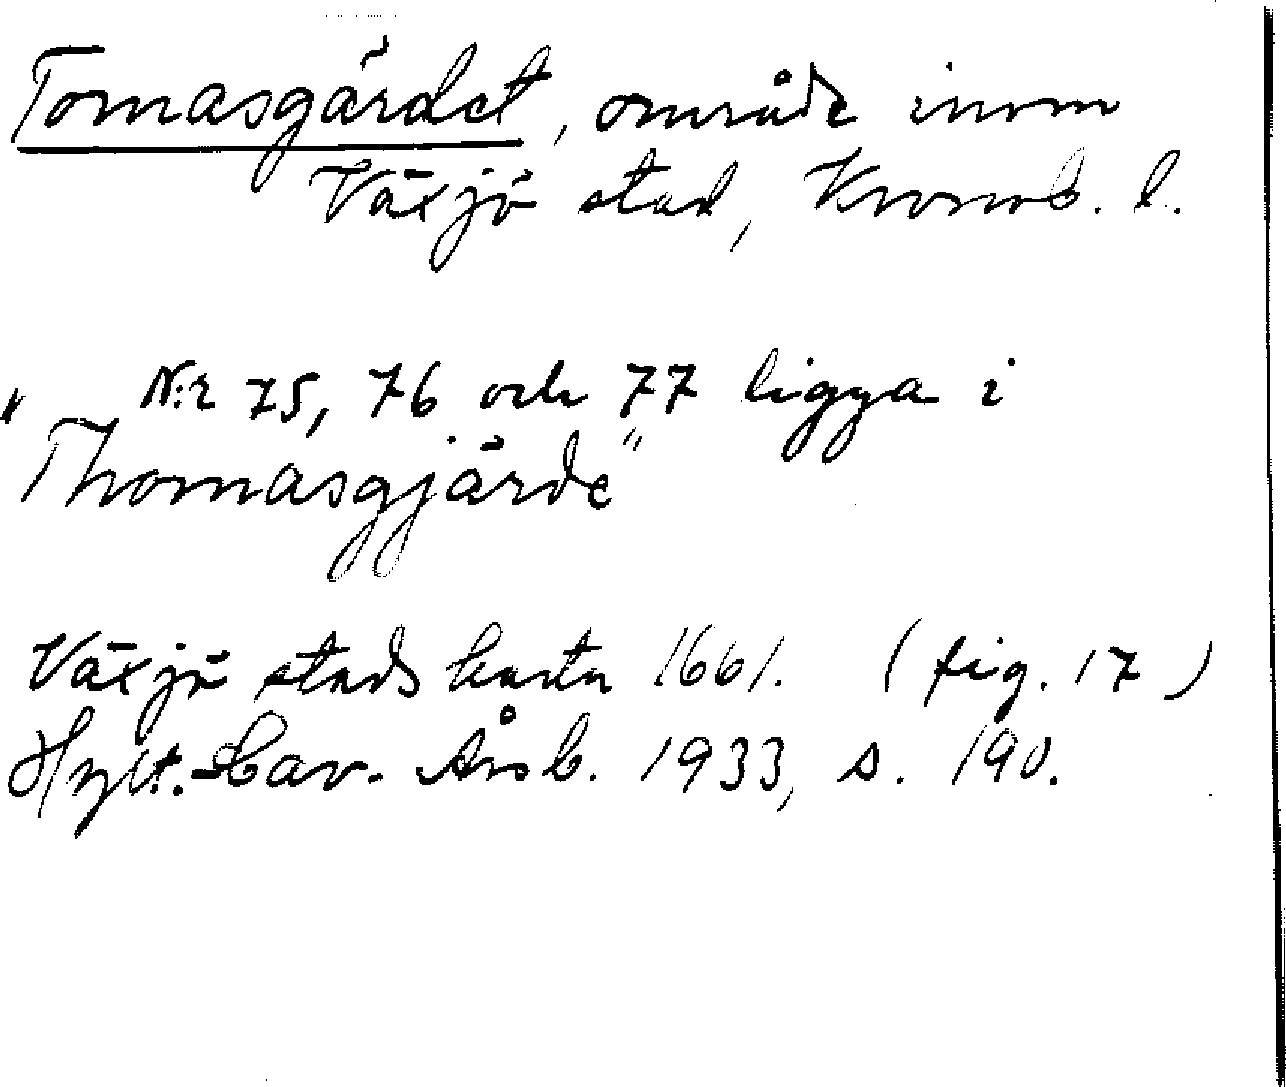 Tomasgärdet, område inom
Växjö stad, Kronob. l.
" N:r 75, 76 och 77 ligga i
Thomasgjärde"
Växjö stads karta 1661. (fig. 17)
Hylt.-Cav. Årsb. 1933, s. 190.